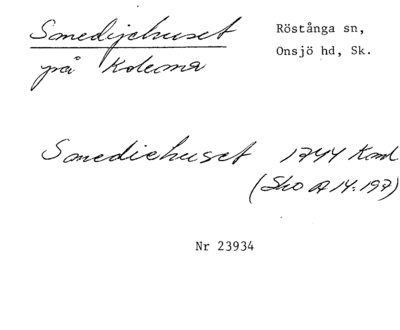 Smedjehuset
på Kolema
Röstånga sn,
Onsjö hd, Sk.
Smediehuset 1744 Kaml
(Sko A 14:197)
Nr 23934